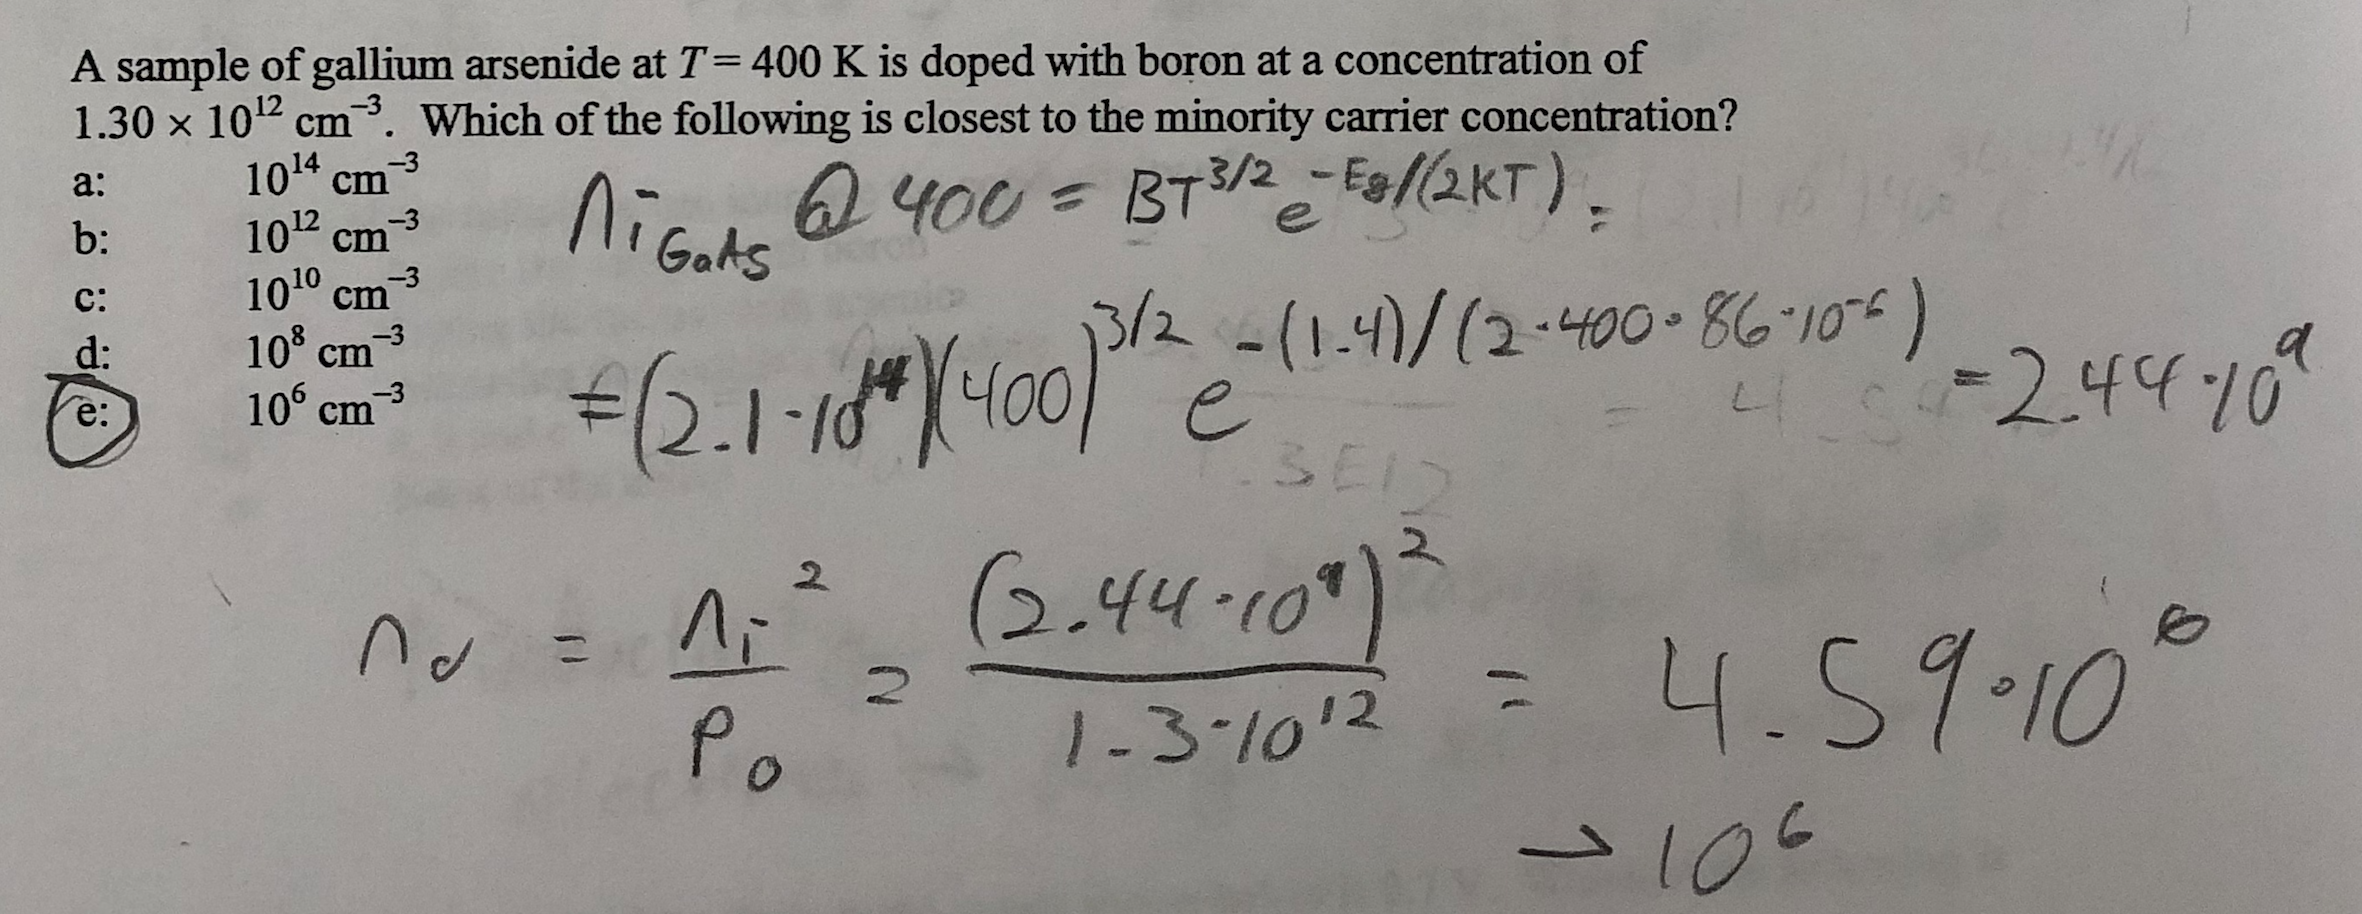 A sample of gallium arsenide at T = 400 K is doped with boron at a concentration of
1.30 × 10¹² cm⁻³. Which of the following is closest to the minority carrier concentration?
a: 10¹⁴ cm⁻³
b: 10¹² cm⁻³
c: 10¹⁰ cm⁻³
d: 10⁸ cm⁻³
e: 10⁶ cm⁻³
nᵢ GaAs @ 400 = BT^(3/2) e^(-Eg/(2KT)) =
= (2.1·10¹⁴)(400)^(3/2) e^(-(1.4)/(2·400·86·10⁻⁶)) = 2.44·10⁹
n₀ = nᵢ²/P₀ = (2.44·10⁹)²/1.3·10¹² = 4.59·10⁶
→ 10⁶